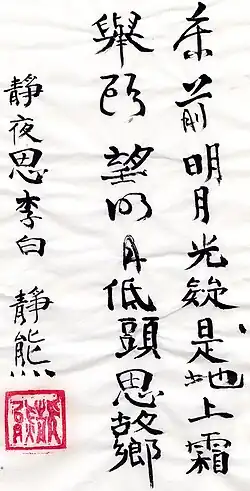 床前明月光疑是地上霜
舉頭望明月低頭思故鄉
靜夜思李白 靜熊